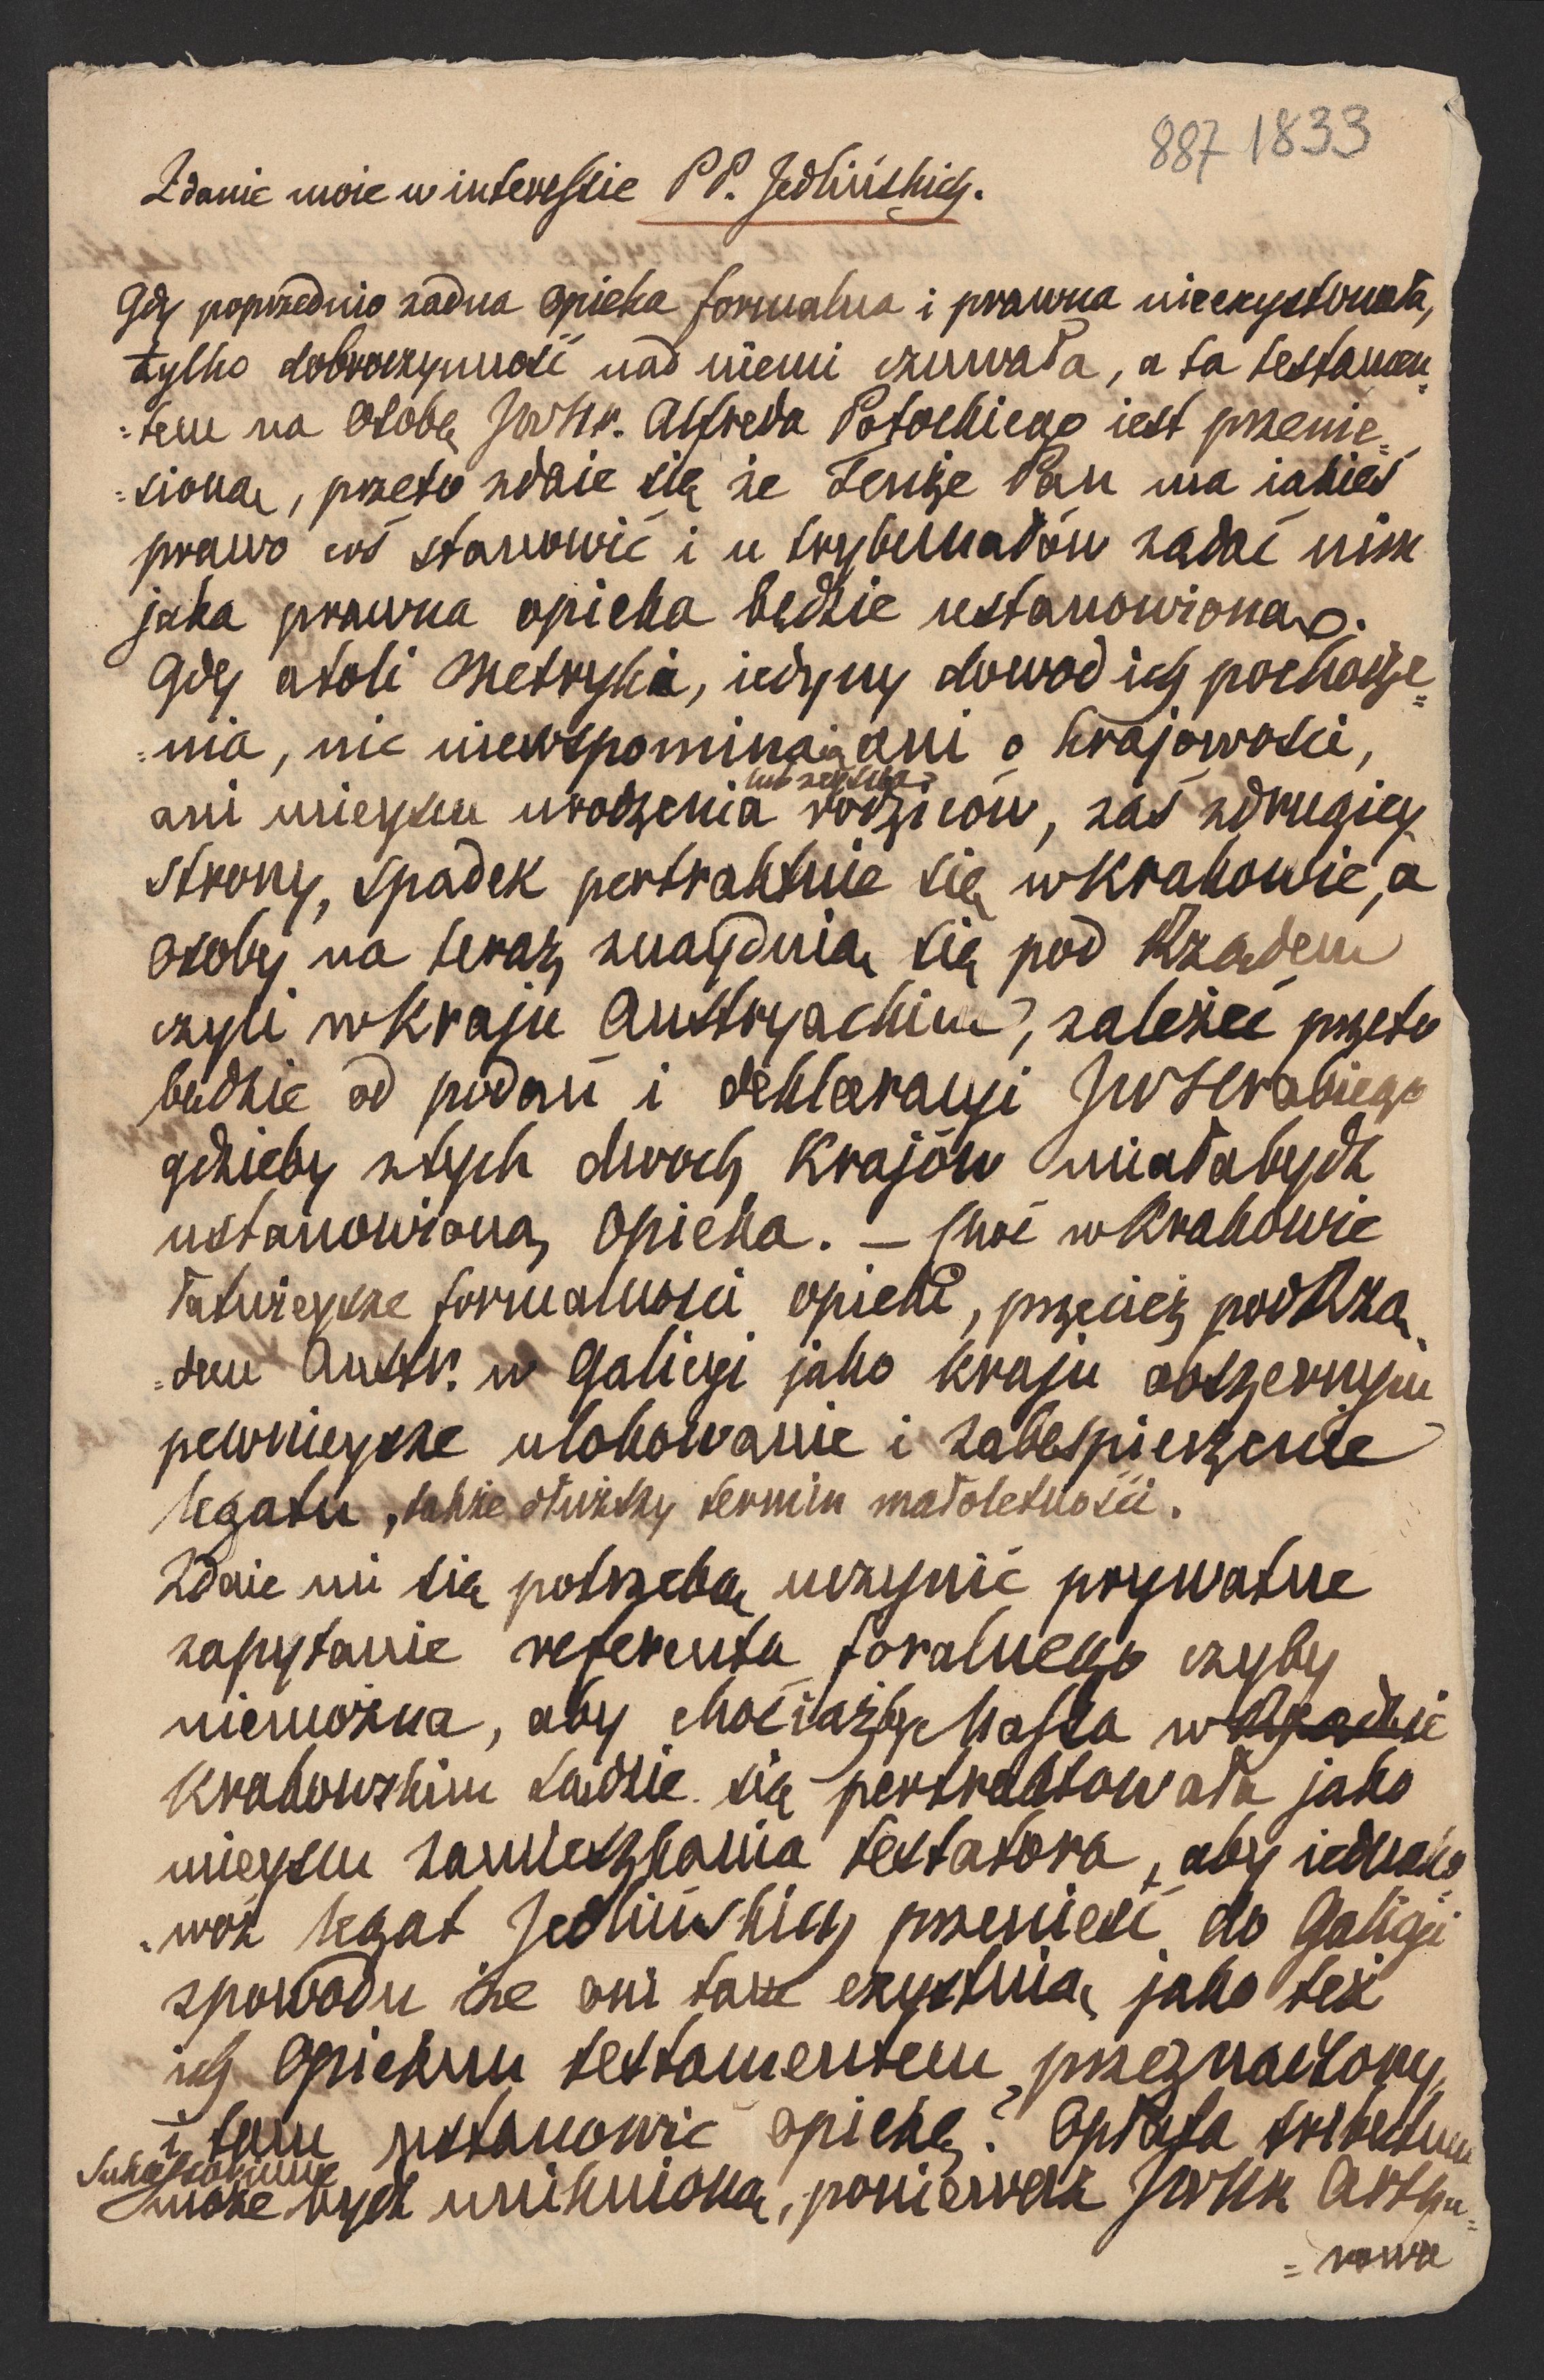 887 1833
Zdanie moie w interessie PP. Jedlińskich.
Gdy poprzednio żadna opieka formalna i prawna nieexystowała,
tylko dobroczynność nad niemi czuwała, a ta testamen=
=tem na osobę JWHr. Alfreda Potockiego iest przenie=
=sioną, przeto zdaie się że Tenże Pan ma iakieś
prawo coś stanowić i u trybunałów żądać nim
jaka prawna opieka będzie ustanowioną.
Gdy atoli Metryka, iedyny dowod ich pochodze=
=nia, nic niewspominaią ani o krajowości,
ani mieyscu urodzenia rodziców, zaś zdrugiey
strony, spadek pertraktuie się w Krakowie, a
osoby na teraz znayduią się pod Rządem
czyli w Kraju Austryackim, zależeć przeto
będzie od podań i deklaracyi JWHrabiego
gdzieby ztych dwoch Krajów miała bydź
ustanowioną opieka. – Choć w Krakowie
łatwieysze formalności opieki, przecież pod Rzą=
=dem Austr. w Galicyi jako kraju obszernym
pewnieysze ulokowanie i zabespieczenie
legatu, także dłuższy termin małoletności.
Zdaie mi się potrzebą uczynić prywatne
zapytanie referenta foralnego czyby
niemożna, aby chociażby Massa w
Krakowskim sądzie się pertraktowała jako
mieyscu zamieszkania testatora, aby iednako=
=woż legat Jedlińskich przenieść do Galicyi
zpowodu że oni tam exystuią jako też
ich Opiekun testamentem przeznaczony
i tam ustanowić opiekę? Opłata
może bydź uniknioną, ponieważ JWHr Arthu=
=rowa